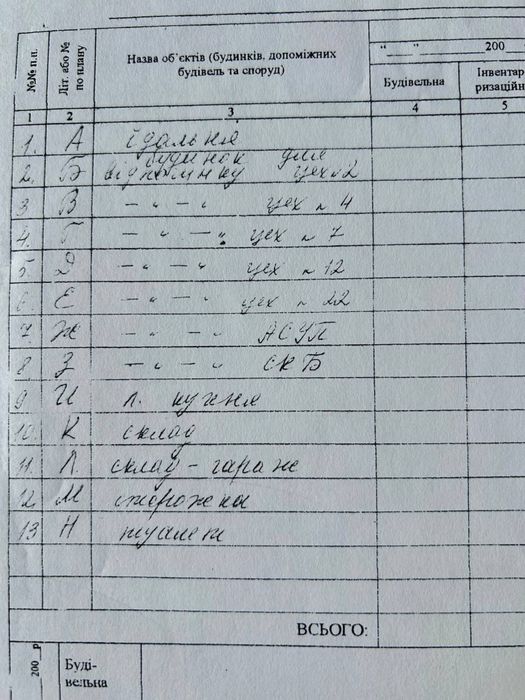 №№ п.п.
Літ. або № по плану
Назва об'єктів (будинків, допоміжних
будівель та споруд)
“ ” 200
Будівельна
Інвентар
ризаційн
1 2 3 4 5
1. А їдальня
2. Б будинок для
відпочинку цех №2
3 В — " — " цех № 4
4. Г — " — " цех № 7
5. Д — " — " цех № 12
6. Е — " — " цех № 22
7. Ж — " — " АСУП
8 З — " — " СКБ
9 И л. кухня
10. К склад
11. Л. склад - гараж
12. М сторожка
13 Н туалет
ВСЬОГО:
200 р
Буді-
вельна